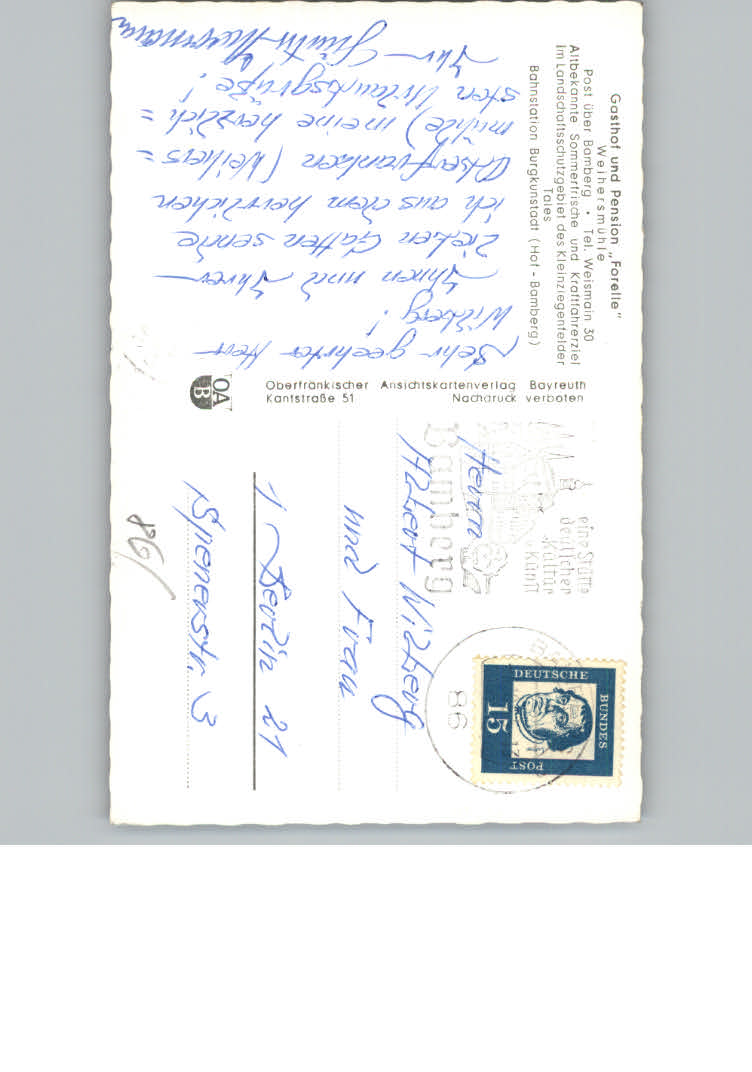 Gasthof und Pension „Forelle"
Weihersmühle
Post über Bamberg • Tel. Weismain 30
Altbekannte Sommerfrische und Kraftfahrerziel
im Landschaftsschutzgebiet des Kleinziegenfelder
Tales
Bahnstation Burgkunstadt (Hof - Bamberg)
Sehr geehrter Herr
Wilberg!
Ihnen und Ihrer
lieben Gatten sende
ich aus dem herrlichen
Oberfranken (Weihers=
mühle) meine herzlich=
sten Urlaubsgrüße!
Ihr
OA
B
Oberfränkischer Ansichtskartenverlag Bayreuth
Kantstraße 51 Nachdruck verboten
eine Stätte
deutscher
Kultur
Kunst
Bamberg
86
DEUTSCHE
BUNDES
POST
15
Herrn
Wilberg
und Frau
1 Berlin 21
Spenerstr. 3